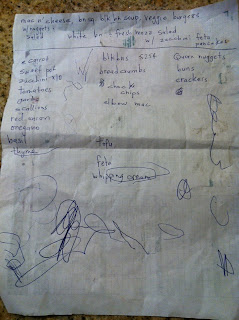 mac n' cheese, bnsq blk bn soup, veggie burgers
w/nuggets +
salad
white bn + fresh mozz salad
w/ zucchini feta
pancakes
carrots
sweet pot
zucchini
tomatoes
scallions
red onions
oregano
basil
thyme
blk bns
breadcrumbs
choc
chips
elbow mac
tofu
feta
whipping cream
Quorn nuggets
buns
crackers